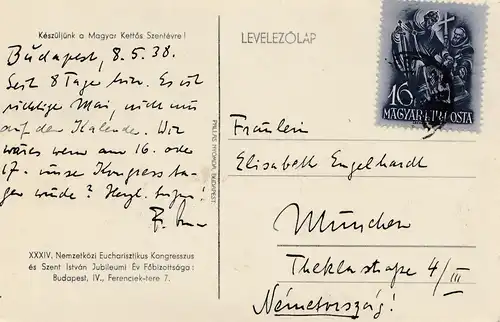 Készüljünk a Magyar Kettős Szentévre!
Budapest, 8.5.38.
Seit 8 Tage hier. Es ist
richtiger Mai, nicht nur
auf dem Kalender. Wie
wäre es wenn am 16. oder
17. unser Kongress ta-
gen würde? Herzl.
XXXIV. Nemzetközi Eucharisztikus Kongresszus
és Szent István Jubileumi Év Főbizottsága:
Budapest, IV., Ferenciek-tere 7.
PALLAS NYOMDA BUDAPEST
LEVELEZŐLAP
16
MAGYAR POSTA
Fräulein
Elisabeth Engelhardt
München
Theklastraße 4/III
Németország!